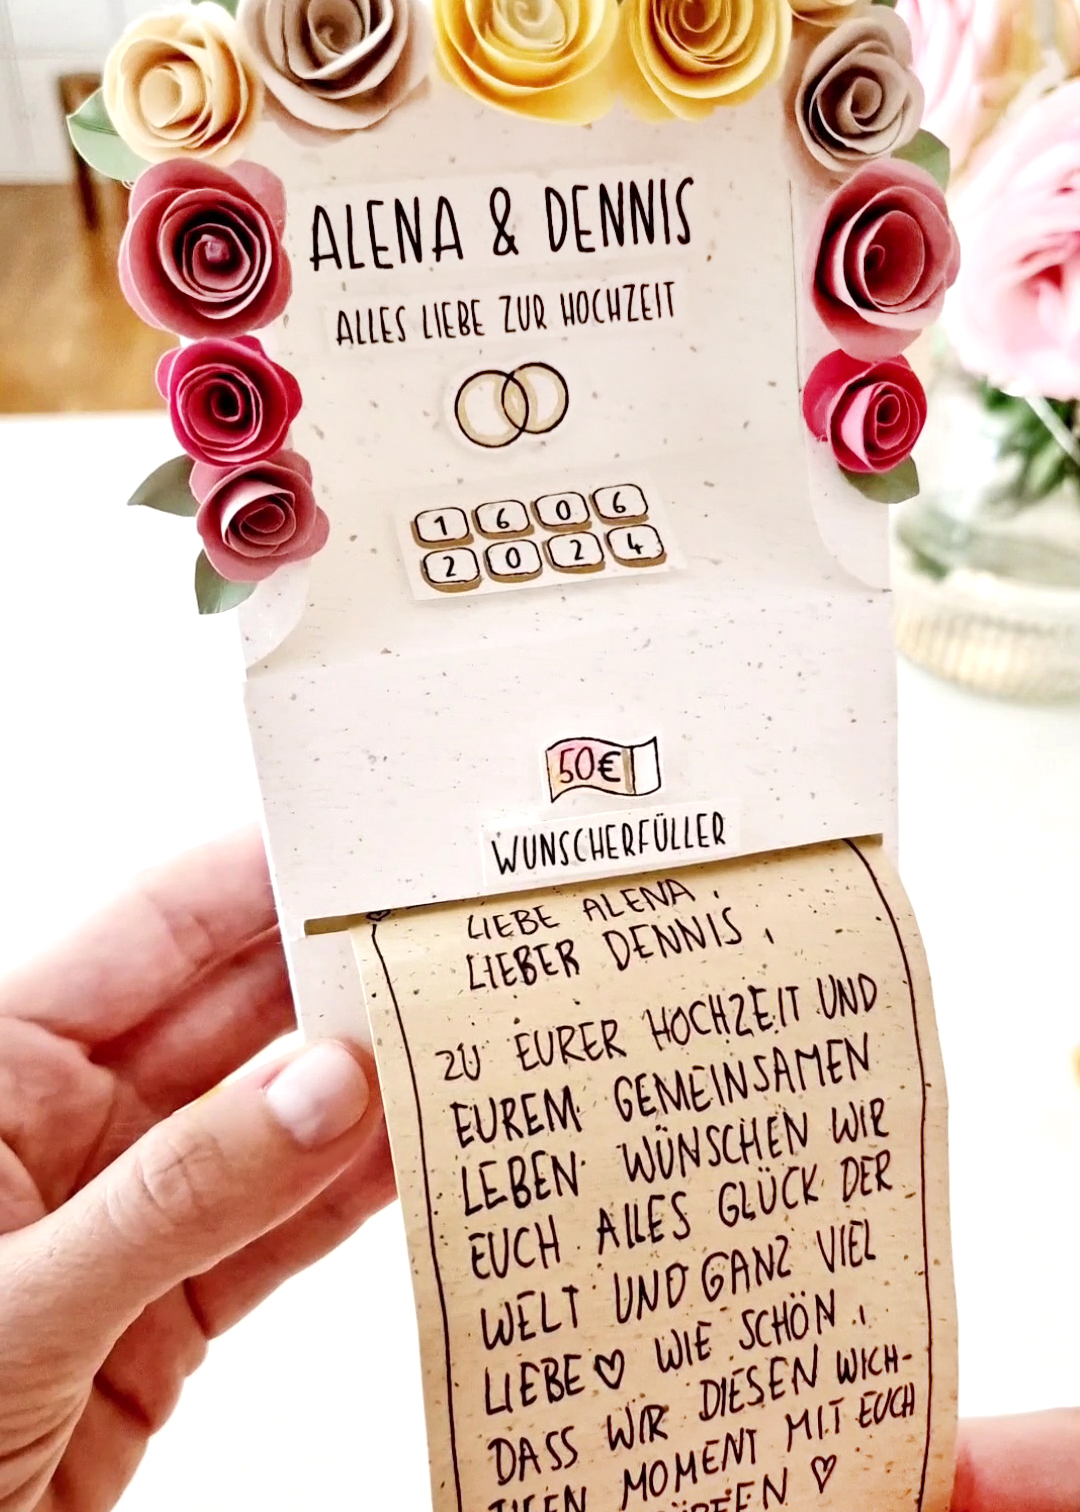 ALENA & DENNIS
ALLES LIEBE ZUR HOCHZEIT
1 6 0 6
2 0 2 4
50€
WUNSCHERFÜLLER
LIEBE ALENA,
LIEBER DENNIS,
ZU EURER HOCHZEIT UND
EUREM GEMEINSAMEN
LEBEN WÜNSCHEN WIR
EUCH ALLES GLÜCK DER
WELT UND GANZ VIEL
LIEBE♡ WIE SCHÖN,
DASS WIR DIESEN WICH-
TIGEN MOMENT MIT EUCH
♡